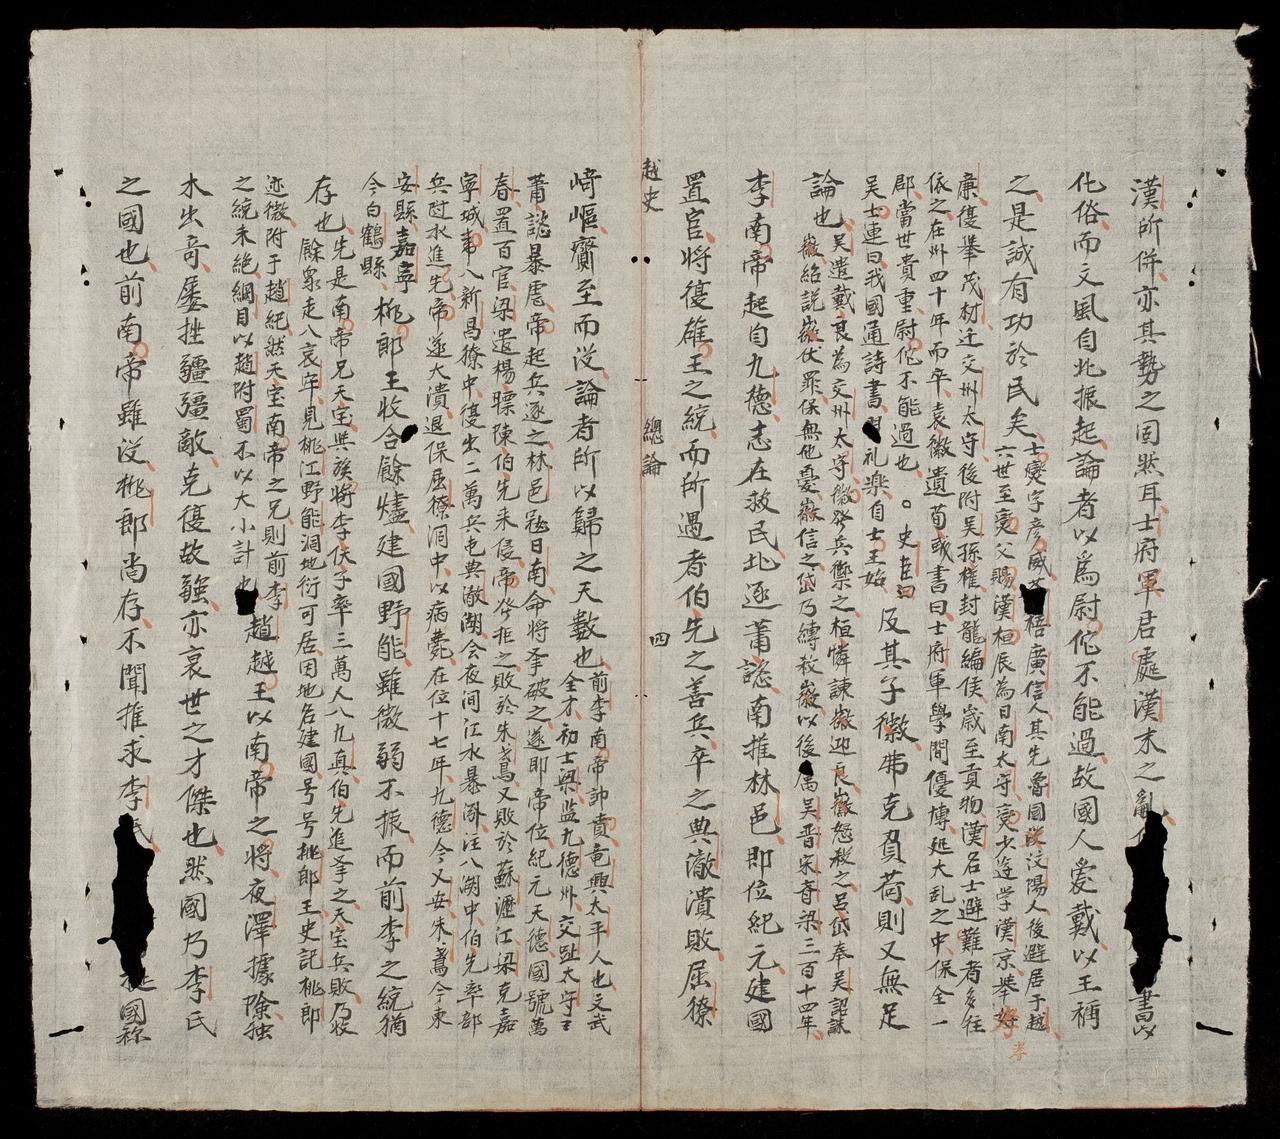 漢所併亦其勢之固然耳士府軍君處漢末之亂
書以
化俗而文風自北振起論者以爲尉佗不能過故國人爱戴以王稱
之是誠有功於民矣
士爕字彦威
梧廣信人其先魯國汶陽人後避居于越
六世至爕父賜漢桓辰為日南太守爕少逰学漢京举好
孝
廉復舉茂材迁交州太守後附吴孫權封龍編侯嵗至貢物漢名士避難者多往
依之在州四十年而卒袁徽遺荀彧書曰士府軍學問優博処大乱之中保全一
郡當世貴重尉佗不能過也。史臣曰
吴士連曰我國通詩書習礼楽自士王始
及其子徽弗克負荷則又無足
論也
吴遣戴良為交州太守徽発兵禦之桓憐諫徽迎良徽怒殺之呂岱奉吴詔誅
徽紿説徽伏罪保無他憂徽信之岱乃縛殺徽以後属吴晋宋斉梁三百十四年
李南帝起自九德志在救民北逐蕭諮南推林邑即位紀元建國
置官将復雄王之統而所遇者伯先之善兵卒之典澈潰敗屈獠
越史
總論
四
﨑嶇齎至而没論者所以歸之天數也
前李南帝帥賁竜興太平人也文武
全才初士梁監九德州交趾太守
蕭諮暴虐帝起兵逐之林邑冦日南命将夆破之遂即帝位紀元天德國號萬
春置百官梁遣楊㬓陳伯先来侵帝㪯拒之敗於朱鳶又敗於蘇瀝江梁克嘉
寧城帝入新昌獠中復出二萬兵屯典澈湖今夜间江水暴漲注八湖中伯先率部
兵附水進先帝遂大潰退保屈獠洞中以病薨在位十七年九德今又安朱鳶今東
安縣嘉寧
今白鶴縣
桃郎王收合餘燼建國野能雖微弱不振而前李之統猶
存也
先是南帝兄天宝與族将李伏子率三萬人入九真伯先追夆之天宝兵敗乃收
餘衆走入哀牢見桃江野能洞地衍可居因地名建國号号桃郎王史記桃郎
迹微附于趙紀然天宝南帝之兄則前李
之統未絶綱目以趙附蜀不以大小計也
趙越王以南帝之将夜澤據險独
木出竒屡挫疆彊敵克復故疆亦哀世之才傑也然國乃李氏
之國也前南帝雖没桃郎尚存不聞推求李氏
國称